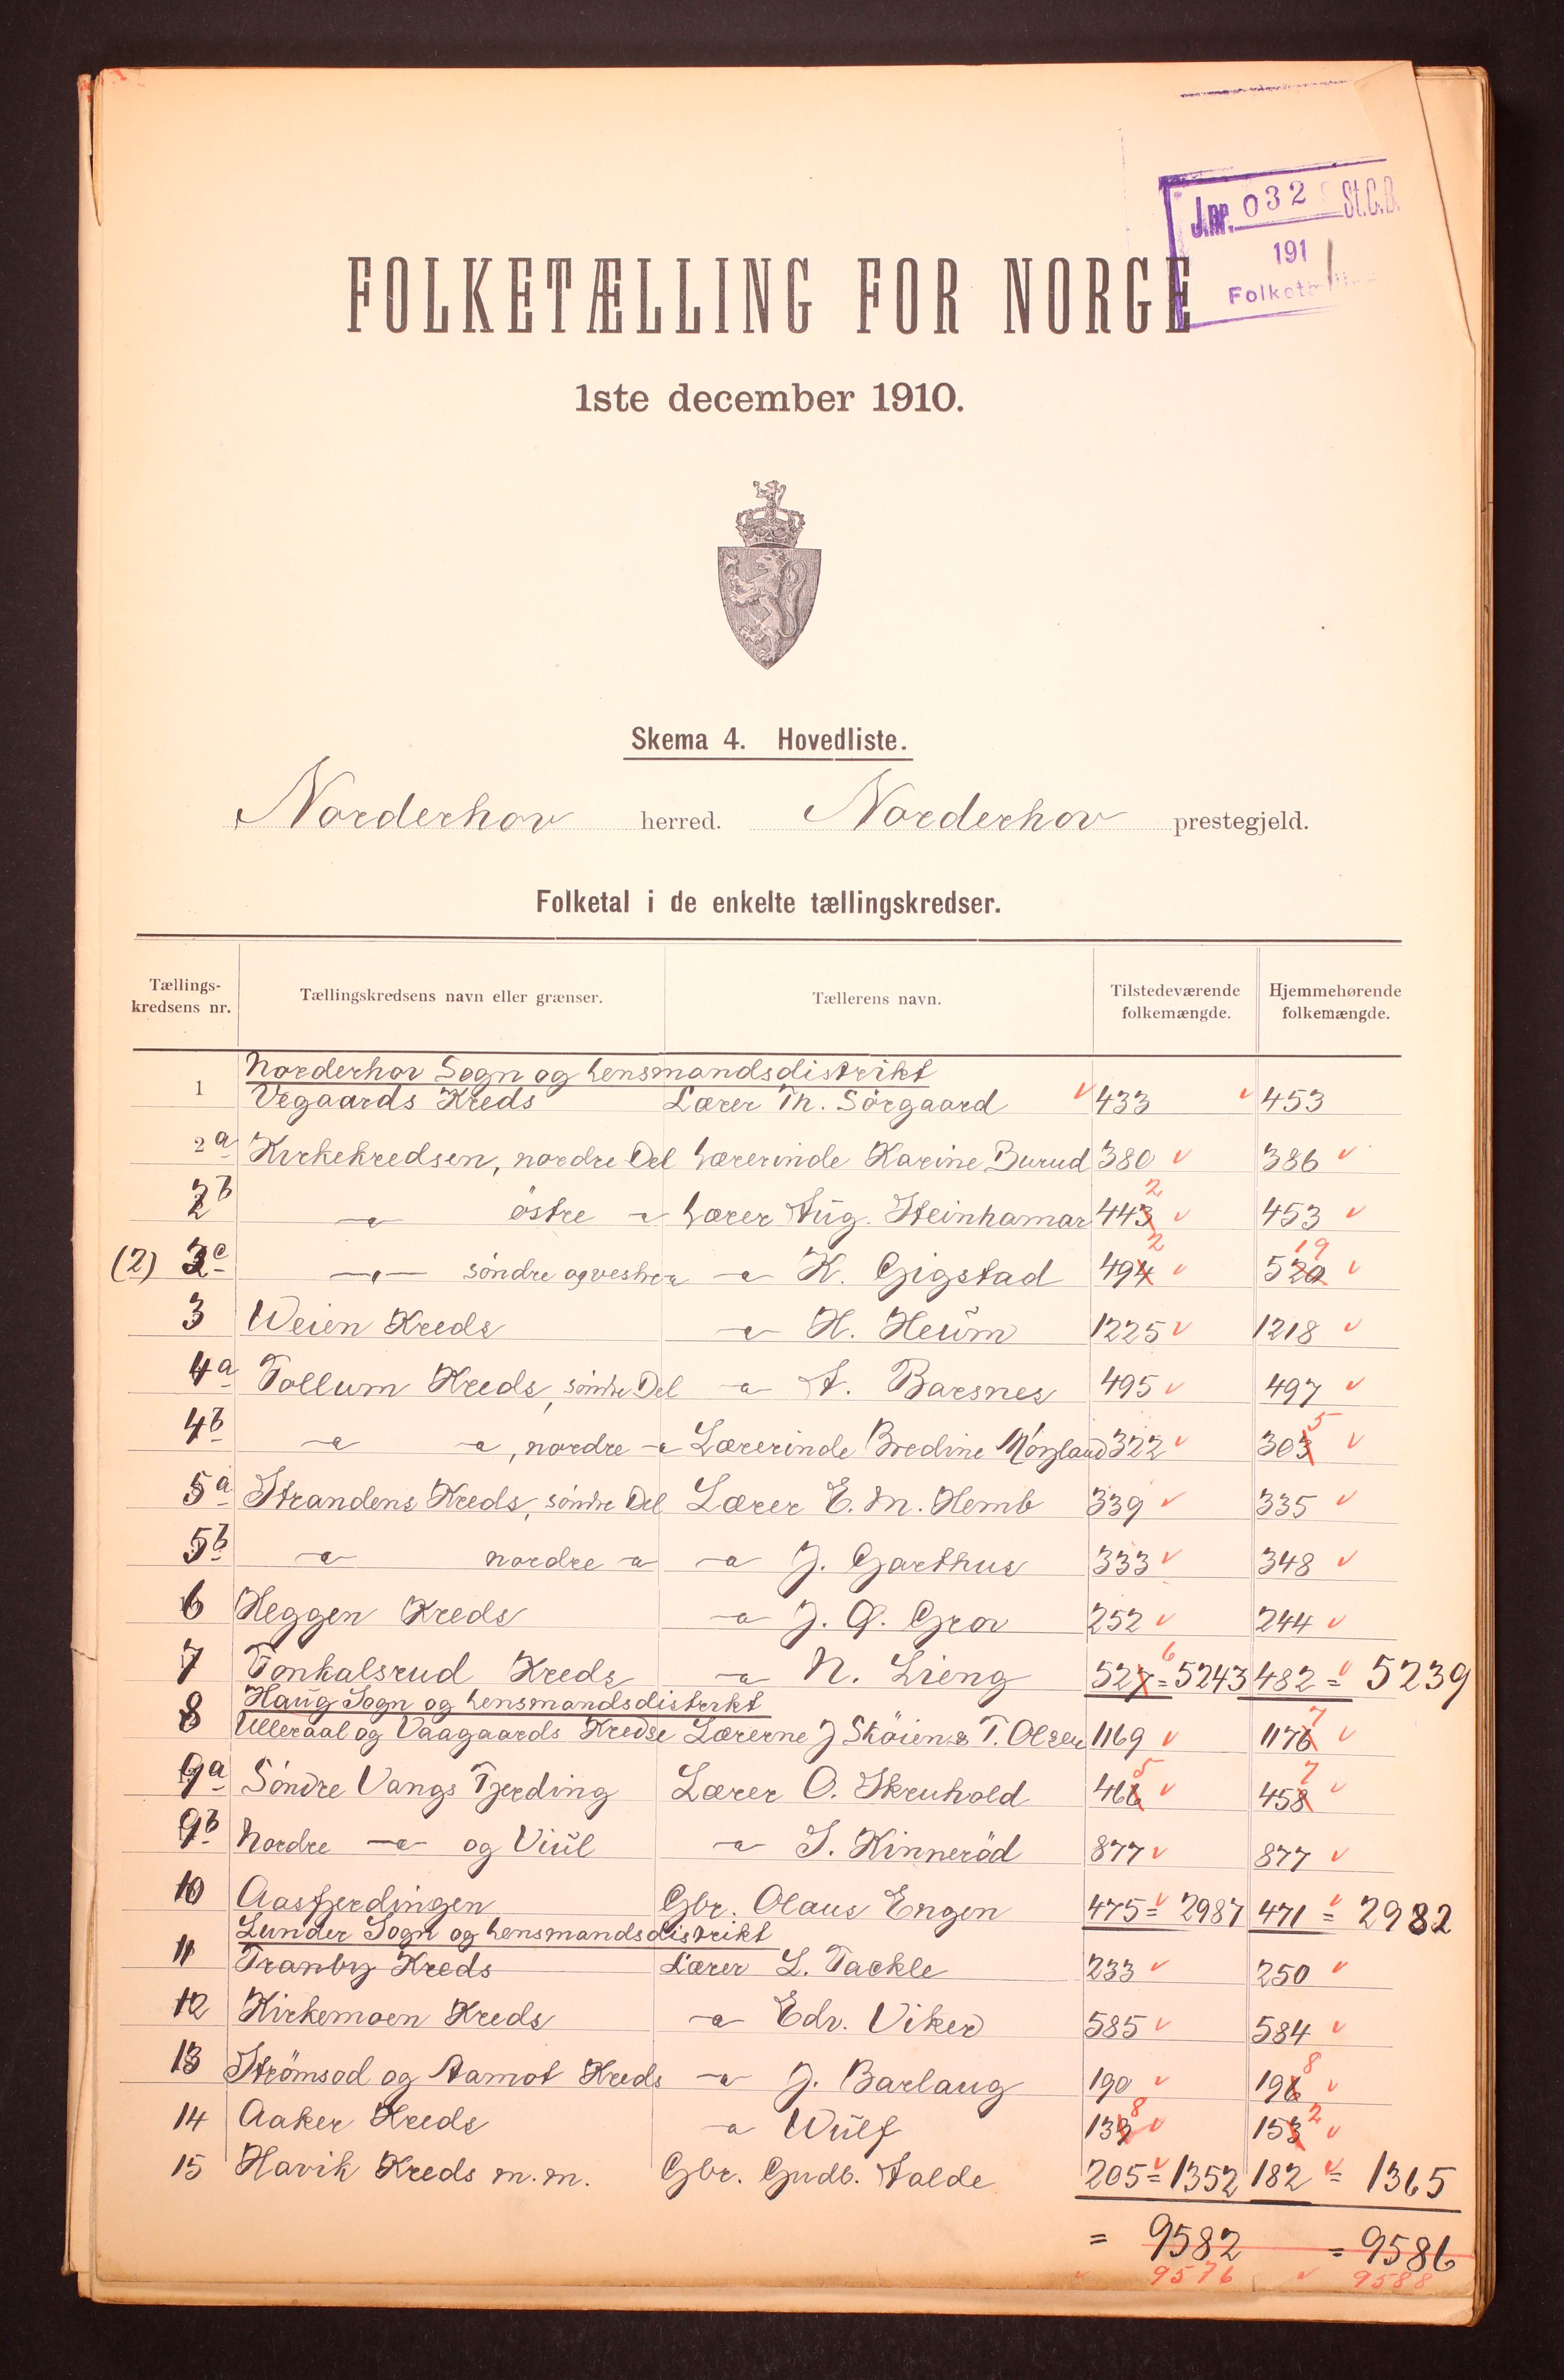 J.nr. 032 St.C.B.
191
FOLKETÆLLING FOR NORGE
1ste december 1910.
Skema 4. Hovedliste.
Norderhov herred. Norderhov prestegjeld.
Folketal i de enkelte tællingskredser.
Tællings-kredsens nr. Tællingskredsens navn eller grænser. Tællerens navn. Tilstedeværende folkemængde. Hjemmehørende folkemængde.
Norderhov Sogn og Lensmandsdistrikt
1 Vegaards Kreds Lærer Th. Sörgaard 433 453
2a Kirkekredsen, nordre Del Lærerinde Karine Burud 380 386
2b —"— östre " Lærer Aug. Steinhamar 443 2 453
(2) 2c —"— söndre og vestre " —"— K. Gigstad 494 2 520 19
3 Weien Kreds —"— H. Heum 1225 1218
4a Tollum Kreds, söndre Del —"— A. Barsnes 495 497
4b —"— —"—, nordre —"— Lærerinde Bredine 322 303 5
5a Strandens Kreds, söndre Del Lærer E. M. Hemb 339 335
5b —"— nordre —"— —"— J. Garthus 333 348
6 Heggen Kreds —"— J. G. Grov 252 244
7 Tonkalsrud Kreds —"— N. Lieng 527 6 = 5243 482 = 5239
Haug Sogn og Lensmandsdistrikt
8 Ulleraal og Vaagaards Kredse Lærerne J Sköien & T. Olsen 1169 1176 7
9a Söndre Vangs Fjerding Lærer O. Skruhold 466 5 458 7
9b Nordre —"— og Viul —"— S. Kinneröd 877 877
10 Aasfjerdingen Gbr. Olaus Engen 475 = 2987 471 = 2982
Lunder Sogn og Lensmandsdistrikt
11 Tranby Kreds Lærer L. Tackle 233 250
12 Kirkemoen Kreds —"— Edv. Viker 585 584
13 Strömsod og Aamot Kreds —"— J. Barlaug 190 196 8
14 Aaker Kreds —"— Wulf 139 8 153 2
15 Havik Kreds m. m. Gbr. Gudb. Aalde 205 = 1352 182 = 1365
= 9582 = 9586
9576 9588